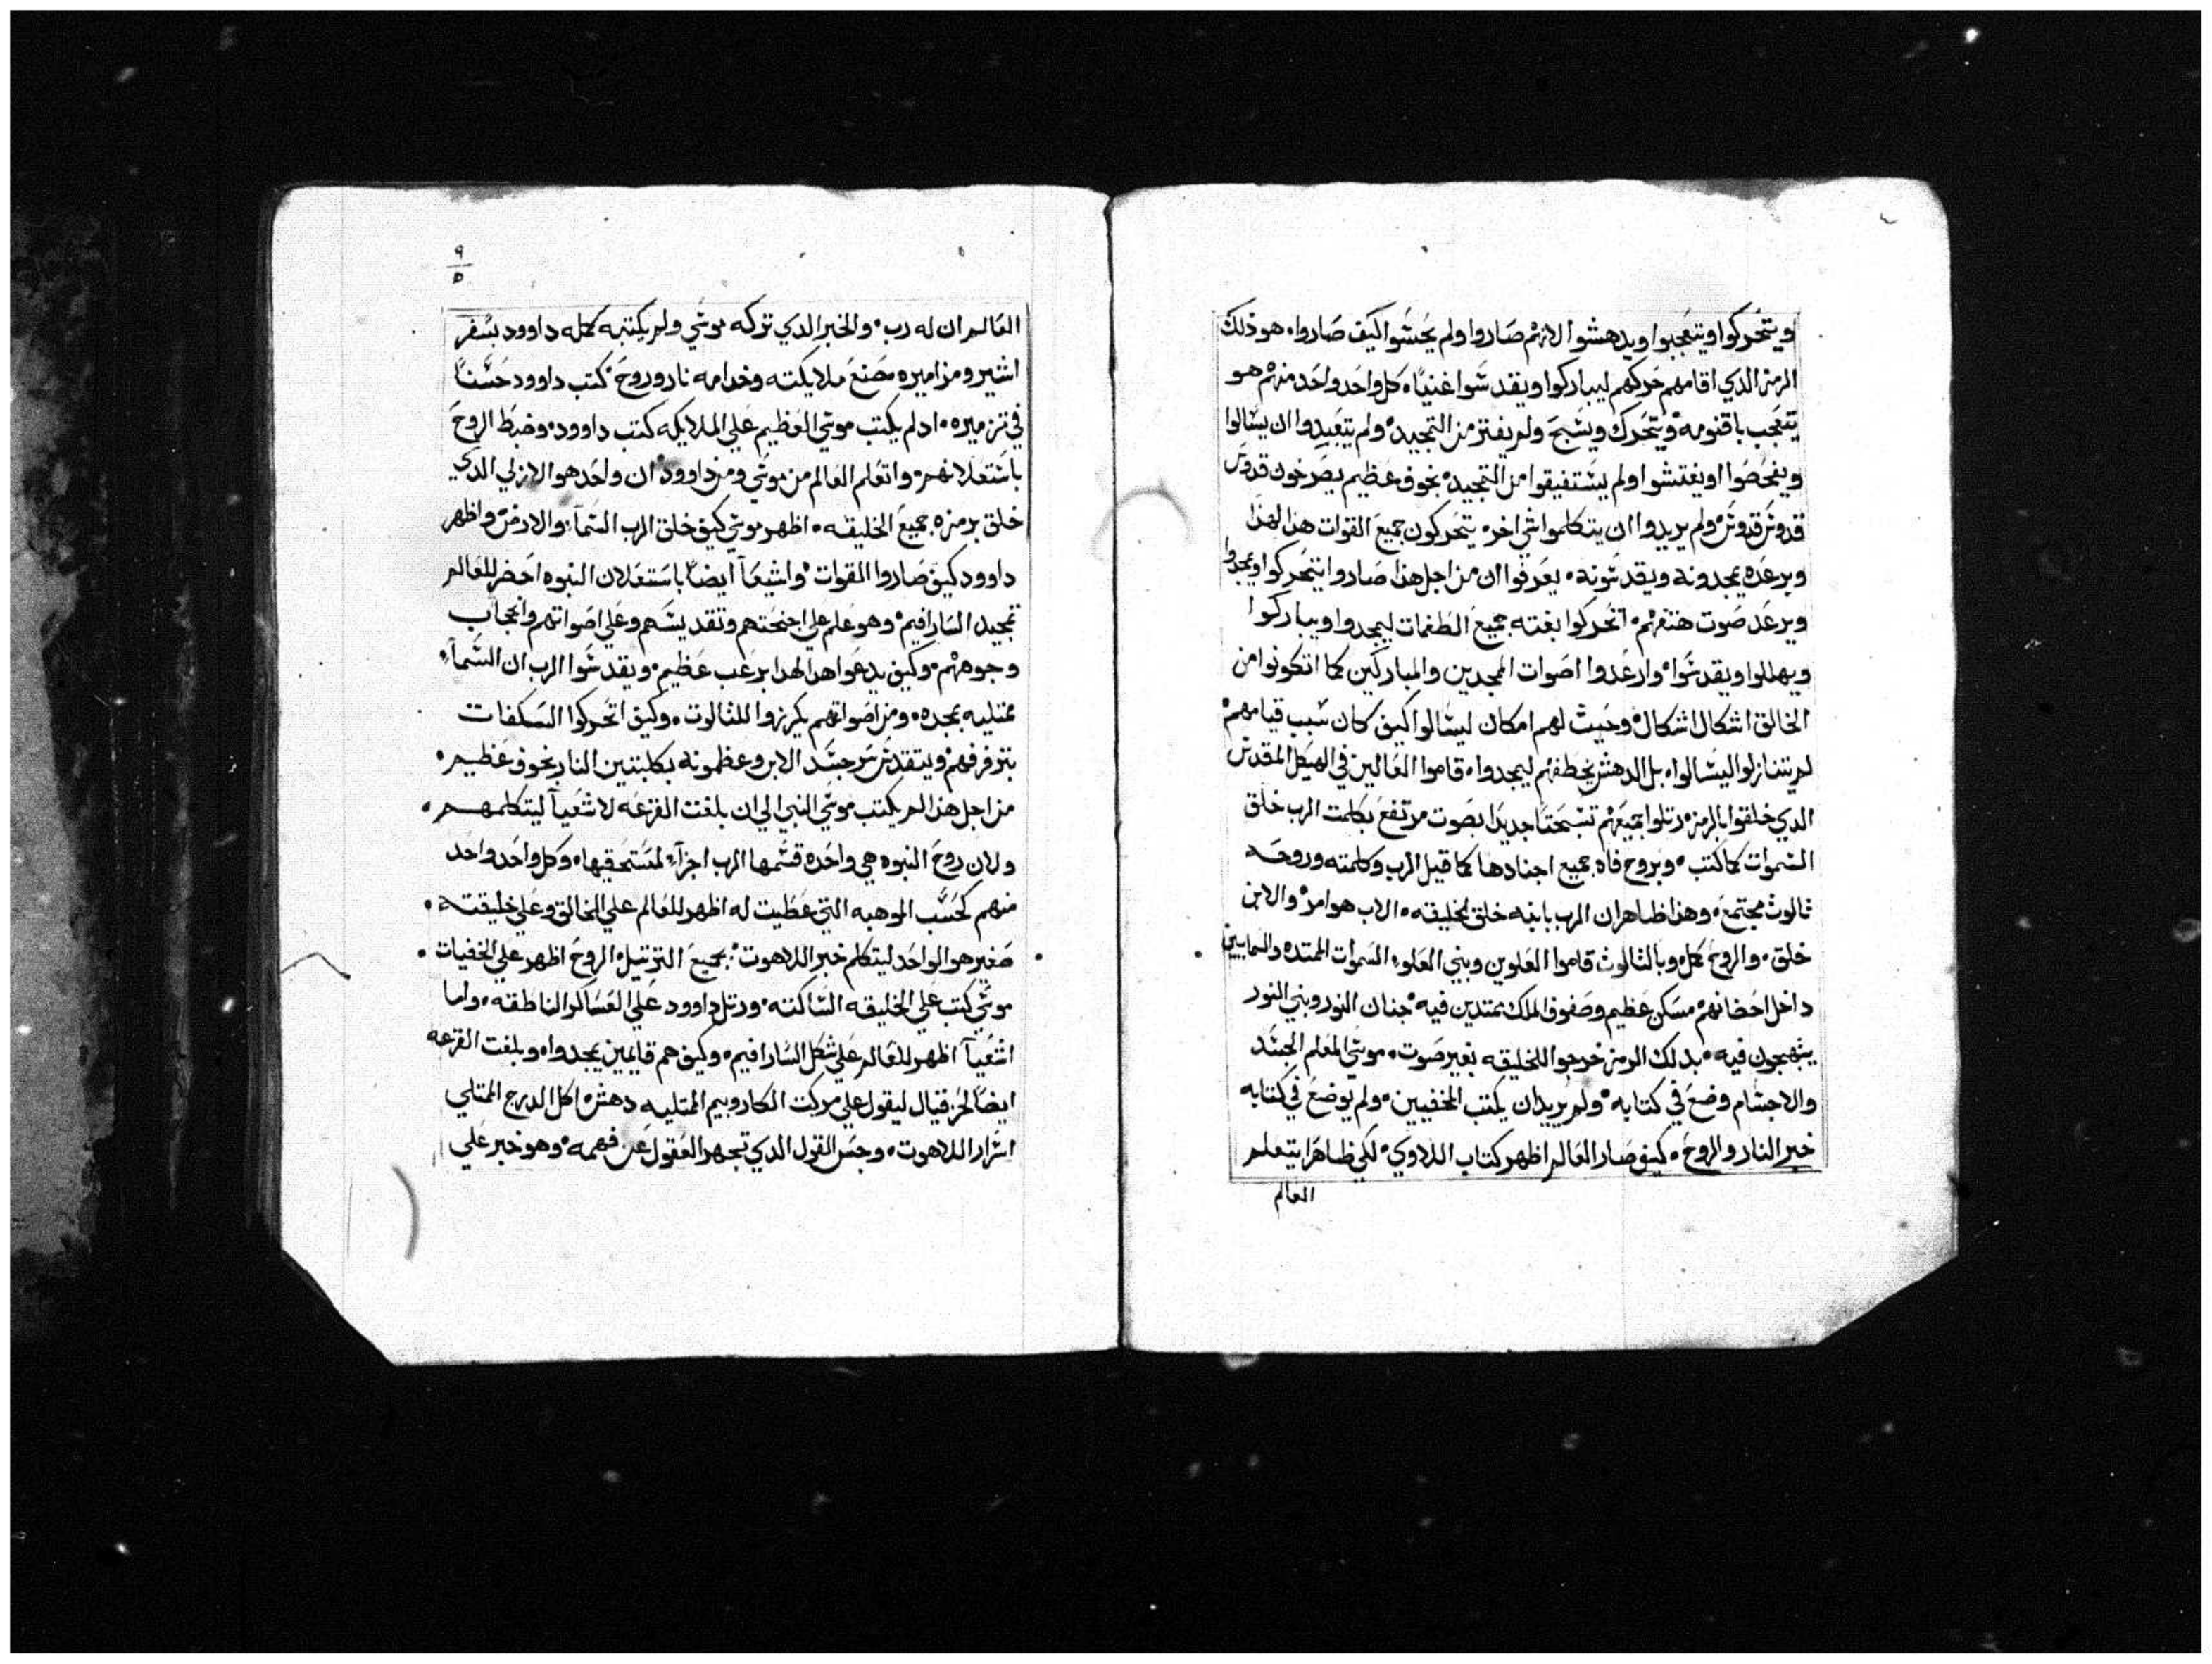 ويتحركوا ويتعجبوا ويدهشوا لانهم صاروا ولم يحسوا كيف صاروا. هو ذلك
الرمز الدي اقامهم حركهم ليباركوا ويقدسوا غنيا. كل واحد واحد منهم هو
يتعجب باقنومه ويتحرك ويسبح ولم يفتر من التمجيد. ولم يتعبدوا ان يسالوا
ويفحصوا او يفتشوا ولم يستفيقوا من التمجيد. بخوف عظيم يصرخون قدوس
قدوس قدوس ولم يريدوا ان يتكلموا شي اخر. يتحركون جميع القوات هذا لهذا
وبرعده يمجدونه ويقدسونه. يعرفوا ان من اجل هذا صاروا يتحركوا ويمجدوا
وبرعد صوت هتفهم. اتحركوا بغته جميع الطغمات ليمجدوا ويباركوا
ويهللوا ويقدسوا. وارعدوا اصوات الممجدين والمباركين كما اتكونوا من
الخالق اشكال اشكال. وحيث لهم امكان ليسالوا كيف كان سبب قيامهم
لم يتنازلوا ليسالوا. بل الدهش يخطفهم ليمجدوا. قاموا العالين في الهيكل المقدس
الدي خلقوا بالرمز. رتلوا جميعهم تسبحتا جديدا بصوت مرتفع بكلمت الرب خلق
السموات كما كتب. وبروح فاه جميع اجنادها كما قيل الرب وكلمته وروحه
ثالوث مجتمع. وهذا ظاهر ان الرب بابنه خلق لخليقته. الاب هو امر. والابن
خلق. والروح كمل. وبالثالوث قاموا العلوين وبني العلو. السموات الممتده والسمايين
داخل احضانهم مسكن عظيم وصفوف الملك يمتدين فيه. جنان النور وبني النور
يتبهجون فيه. بدلك الرمز خرجوا للخليقه بغير صوت. موسي المعلم الجسد
والاجسام وضع في كتابه. ولم يريد ان يكتب المخفيين. ولم يوضع في كتابه
خبر النار والروح. كيف صار العالم اظهر كتاب اللاوي. لكي ظاهرا يتعلم
العالم
٩
٥
العالم ان له رب. والخبر الدي تركه موسي ولم يكتبه كمله داوود بسفر
اشير ومزاميره صنع ملايكته وخدامه نار وروح. كتب داوود حسنا
في تزميره. اد لم يكتب موسي العظيم علي الملايكه كتب داوود. وضبط الروح
باستعلانهم. واتعلم العالم من موسي ومن داوود. ان واحد هو الازلي الدي
خلق برمزه جميع الخليقه. اظهر موسي كيف خلق الرب السمآء والارض واظهر
داوود كيف صاروا القوات. واشعيا ايضا باستعلان النبوه احضر للعالم
تمجيد السارافيم. وهو علم علي اجنحتهم وتقديسهم وعلي اصواتهم وانحجاب
وجوههم. وكيف يدعوا هدا لهدا برعب عظيم. ويقدسوا الرب ان السمآء
ممتليه بمجده. ومن اصواتهم يكرزوا للثالوت. وكيف اتحركوا السكفات
بتزفرفهم ويتقدس سر جسد الابن وعظمونه بكلبتين النار بخوف عظيم.
من اجل هذا لم يكتب موسي النبي الي ان بلغت القرعه لاشعيا ليتكلمهم.
ولان روح النبوه هي واحده قسمها الرب اجزآء لمستحقيها. وكل واحد واحد
منهم كحسب الموهبه التي عطيت له اظهر للعالم علي الخالق وعلي خليقته.
صغير هو الواحد ليتكلم خبر اللاهوت. بجميع التزتيل الروح اظهر علي الخفيات.
موسي كتب علي الخليقه الساكته. ورتل داوود علي العساكر الناطقه. واما
اشعيآ اظهر للعالم علي شكل السارافيم. وكيف هم قايمين يمجدوا. وبلغت القرعه
ايضا لحزقيال ليقول علي مركبت الكاروبيم المتليه دهش. اكل الدرج الممتلي
اسرار اللاهوت. وحس القول الدي تجهر العقول عن فهمه. وهو خبر علي